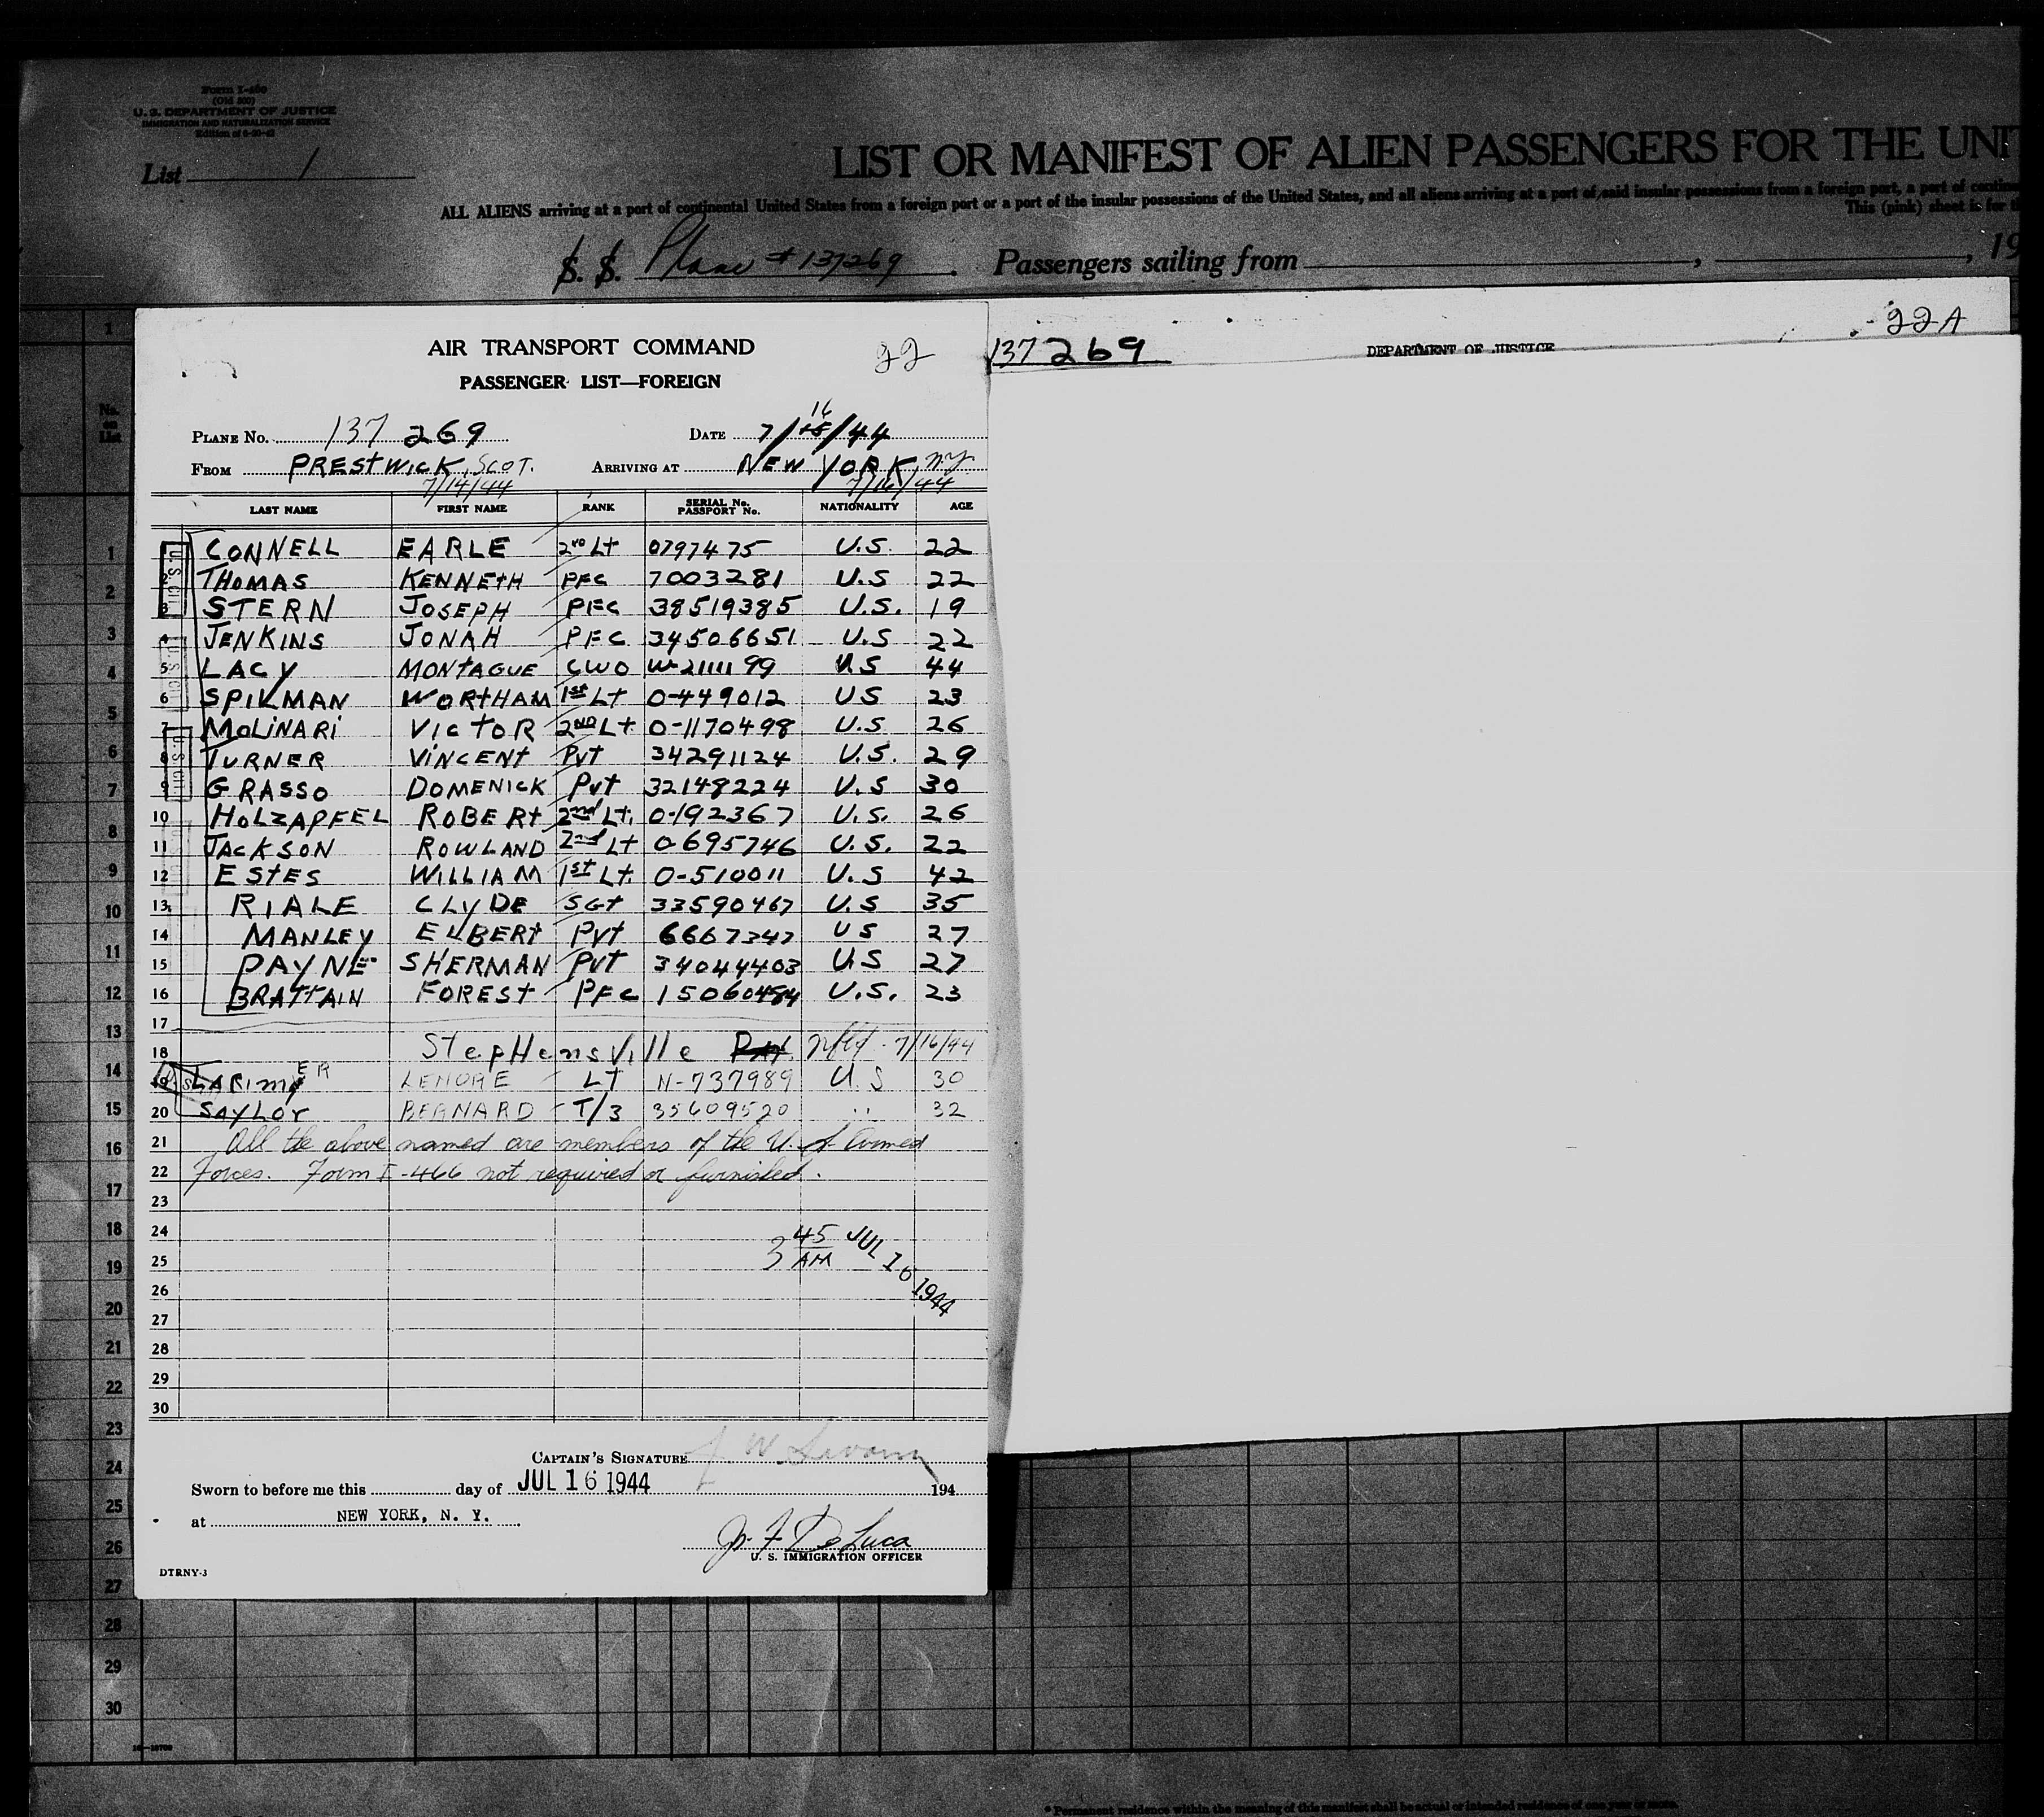 Form I-460
(Old 500)
U. S. DEPARTMENT OF JUSTICE
IMMIGRATION AND NATURALIZATION SERVICE
List 1
LIST OR MANIFEST OF ALIEN PASSENGERS FOR THE UNI
ALL ALIENS arriving at a port of continental United States from a foreign port or a port of the insular possessions of the United States, and all aliens arriving at a port of said insular possessions from a foreign port, a port of contin
This (pink) sheet is for t
S. S. Plane # 137269 . Passengers sailing from , , 19
AIR TRANSPORT COMMAND
22
PASSENGER LIST—FOREIGN
137269
DEPARTMENT OF JUSTICE
22A
PLANE NO. 137 269 DATE 7/16/44
FROM PRESTWICK, SCOT. ARRIVING AT NEW YORK, NY
7/14/44 7/16/44
No. on List
LAST NAME FIRST NAME RANK SERIAL No. PASSPORT No. NATIONALITY AGE
1 CONNELL EARLE 2ND Lt 0797475 U.S. 22
2 THOMAS KENNEtH PFC 7003281 U.S 22
3 STERN JOSEPH PFC 38519385 U.S. 19
4 JENKINS JONAH PFC 34506651 U.S 22
5 LACY MONtAGUE CWO W-2111199 US 44
6 SPILMAN WORtHAM 1st Lt 0-449012 US 23
7 MOLiNARi VictOR 2ND Lt. 0-1170498 U.S 26
8 TURNER ViNCENt Pvt 34291124 U.S. 29
9 GRASSO DOMENICK Pvt 32148224 U.S 30
10 HOLZAPFEL ROBERt 2nd Lt. 0-192367 U.S. 26
11 JACKSON ROWLAND 2nd Lt 0-695746 U.S. 22
12 ESTES WILLIAM 1st Lt. 0-510011 U.S 42
13 RIALE CLYDE SGt 33590467 U.S 35
14 MANLEY ELBERt Pvt 6667347 US 27
15 PAYNE SHERMAN Pvt 34044403 U.S 27
16 BRATTAIN FOREST PFC 15060484 U.S. 23
17
18 StepHensville Nfld - 7/16/44
19 LARIMER LENORE LT N-737989 U.S 30
20 SAYLOR BERNARD T/3 35609520 " 32
21 All the above named are members of the U.S. Armed
22 Forces. Form I-466 not required or furnished.
23
24
25
3 45 AM JUL 16 1944
26
27
28
29
30
CAPTAIN'S SIGNATURE
Sworn to before me this day of JUL 16 1944 194
at NEW YORK, N. Y.
De Luca
U. S. IMMIGRATION OFFICER
DTRNY-3
1
2
3
4
5
6
7
8
9
10
11
12
13
14
15
16
17
18
19
20
21
22
23
24
25
26
27
28
29
30
* Permanent residence within the meaning of this manifest shall be actual or intended residence of one year or more.